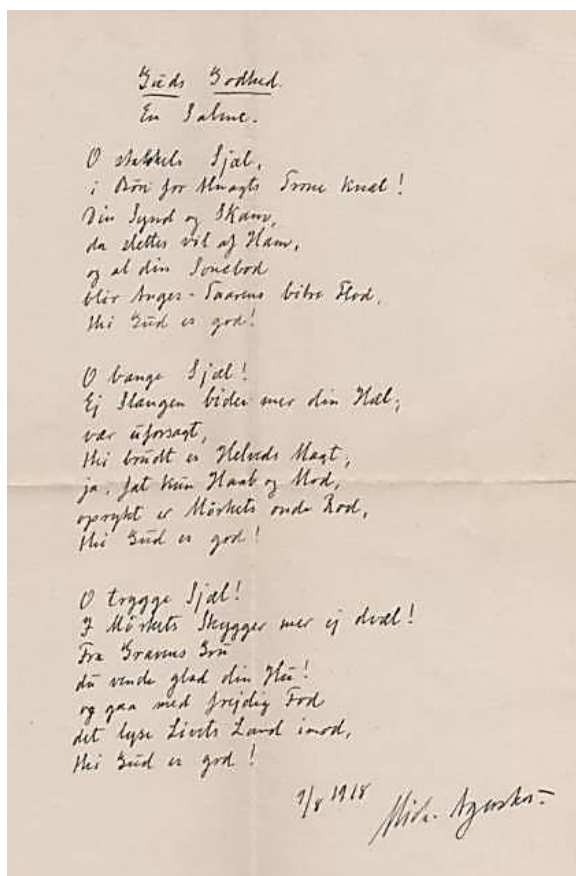 Guds Godhed.
En Salme.
O stakkels Sjæl,
i Bön for Almagts Trone knæl!
Din Synd og Skam,
da slettes vil af Ham,
og al din Sonebod
blir Anger-Taarens bitre Flod,
thi Gud er god!
O bange Sjæl!
Ej Slangen bider mer din Hæl;
vær uforsagt,
thi brudt er Helveds Magt,
ja, fat kun Haab og Mod,
oprykt er Mörkets onde Rod,
thi Gud er god!
O trygge Sjæl!
I Mörkets Skygger mer ej dvæl!
Fra Gravens Gru
du vende glad din Hu!
og gaa med frejdig Fod
det lyse Livets Land imod,
thi Gud er god!
9/8 1918
Mich. Agerskov